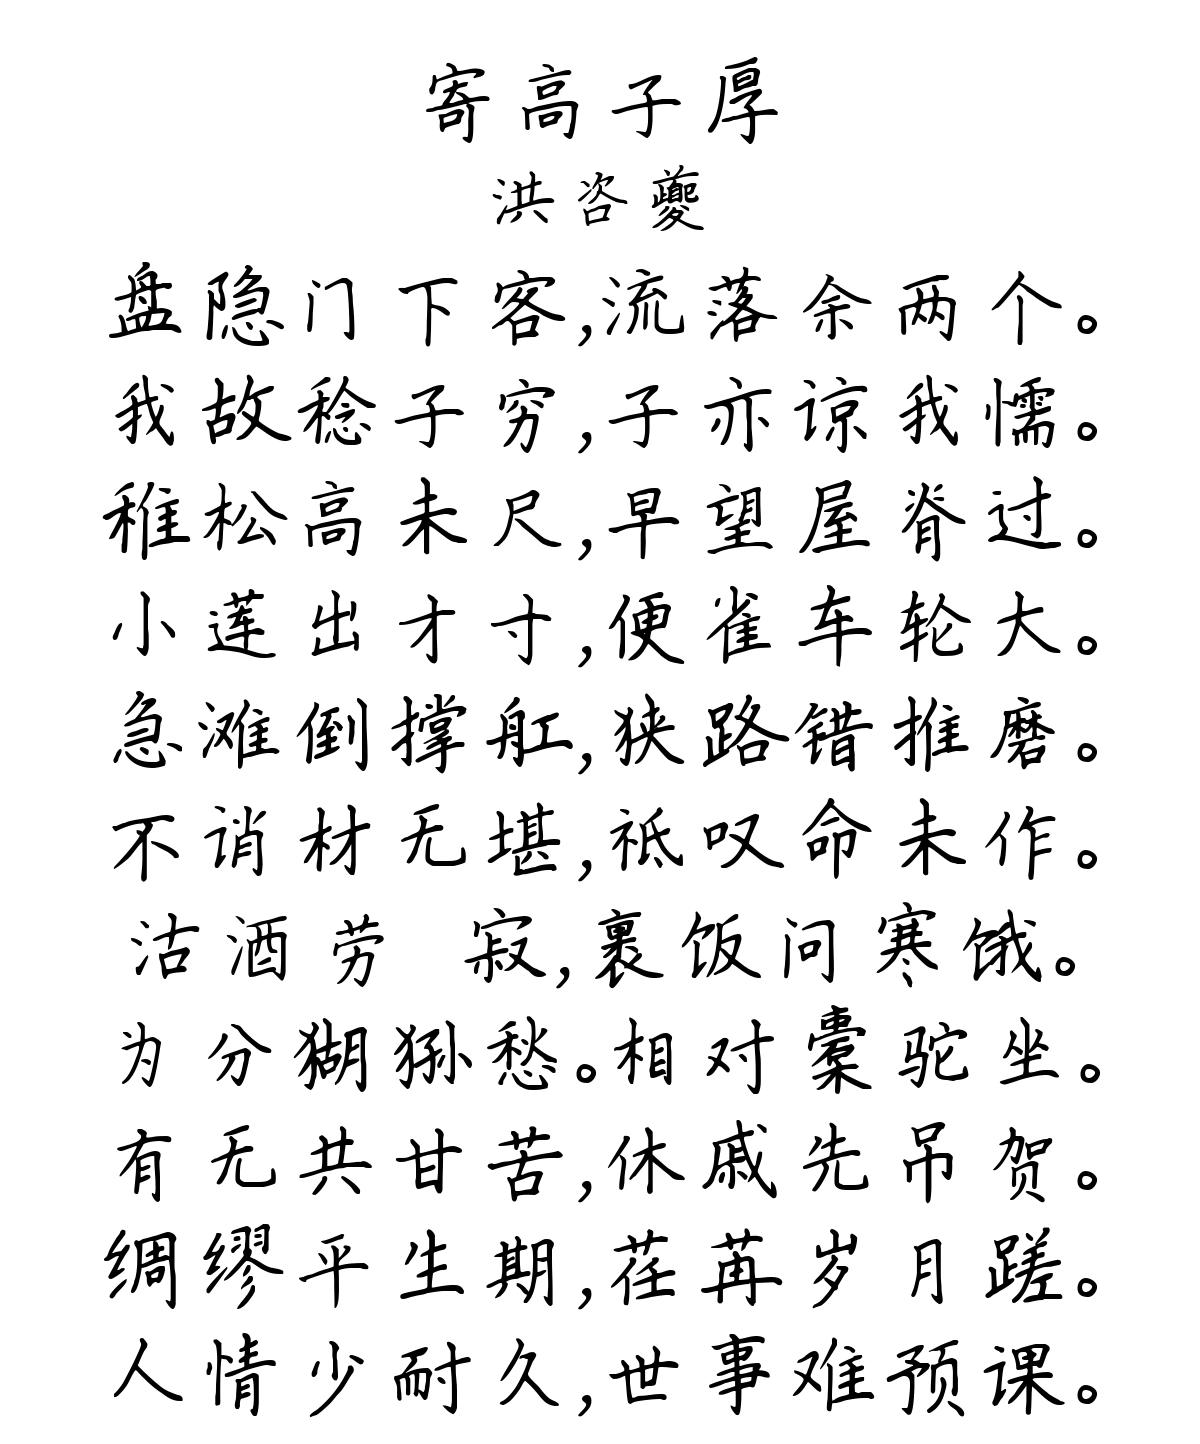 寄高子厚
洪咨夔
盘隐门下客,流落余两个。
我故稔子穷,子亦谅我懦。
稚松高未尺,早望屋脊过。
小莲出才寸,便雀车轮大。
急滩倒撑舡,狭路错推磨。
不诮材无堪,祗叹命未作。
沽酒劳 寂,裹饭问寒饿。
为分猢狲愁。相对橐驼坐。
有无共甘苦,休戚先吊贺。
绸缪平生期,荏苒岁月蹉。
人情少耐久,世事难预课。